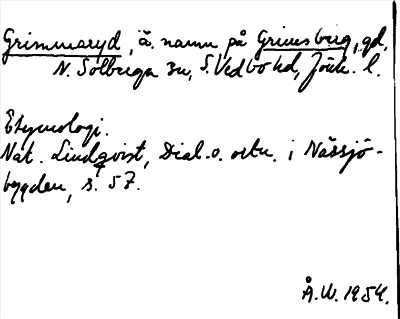 Grimmaryd, ä. namn på Grimsberg, gd,
N. Solberga sn, S. Vedbo hd, Jönk. l.
Etymologi.
Nat. Lindqvist, Dial. o. ortn. i Nässjö-
bygden, s. 57.
Å.W. 1954.